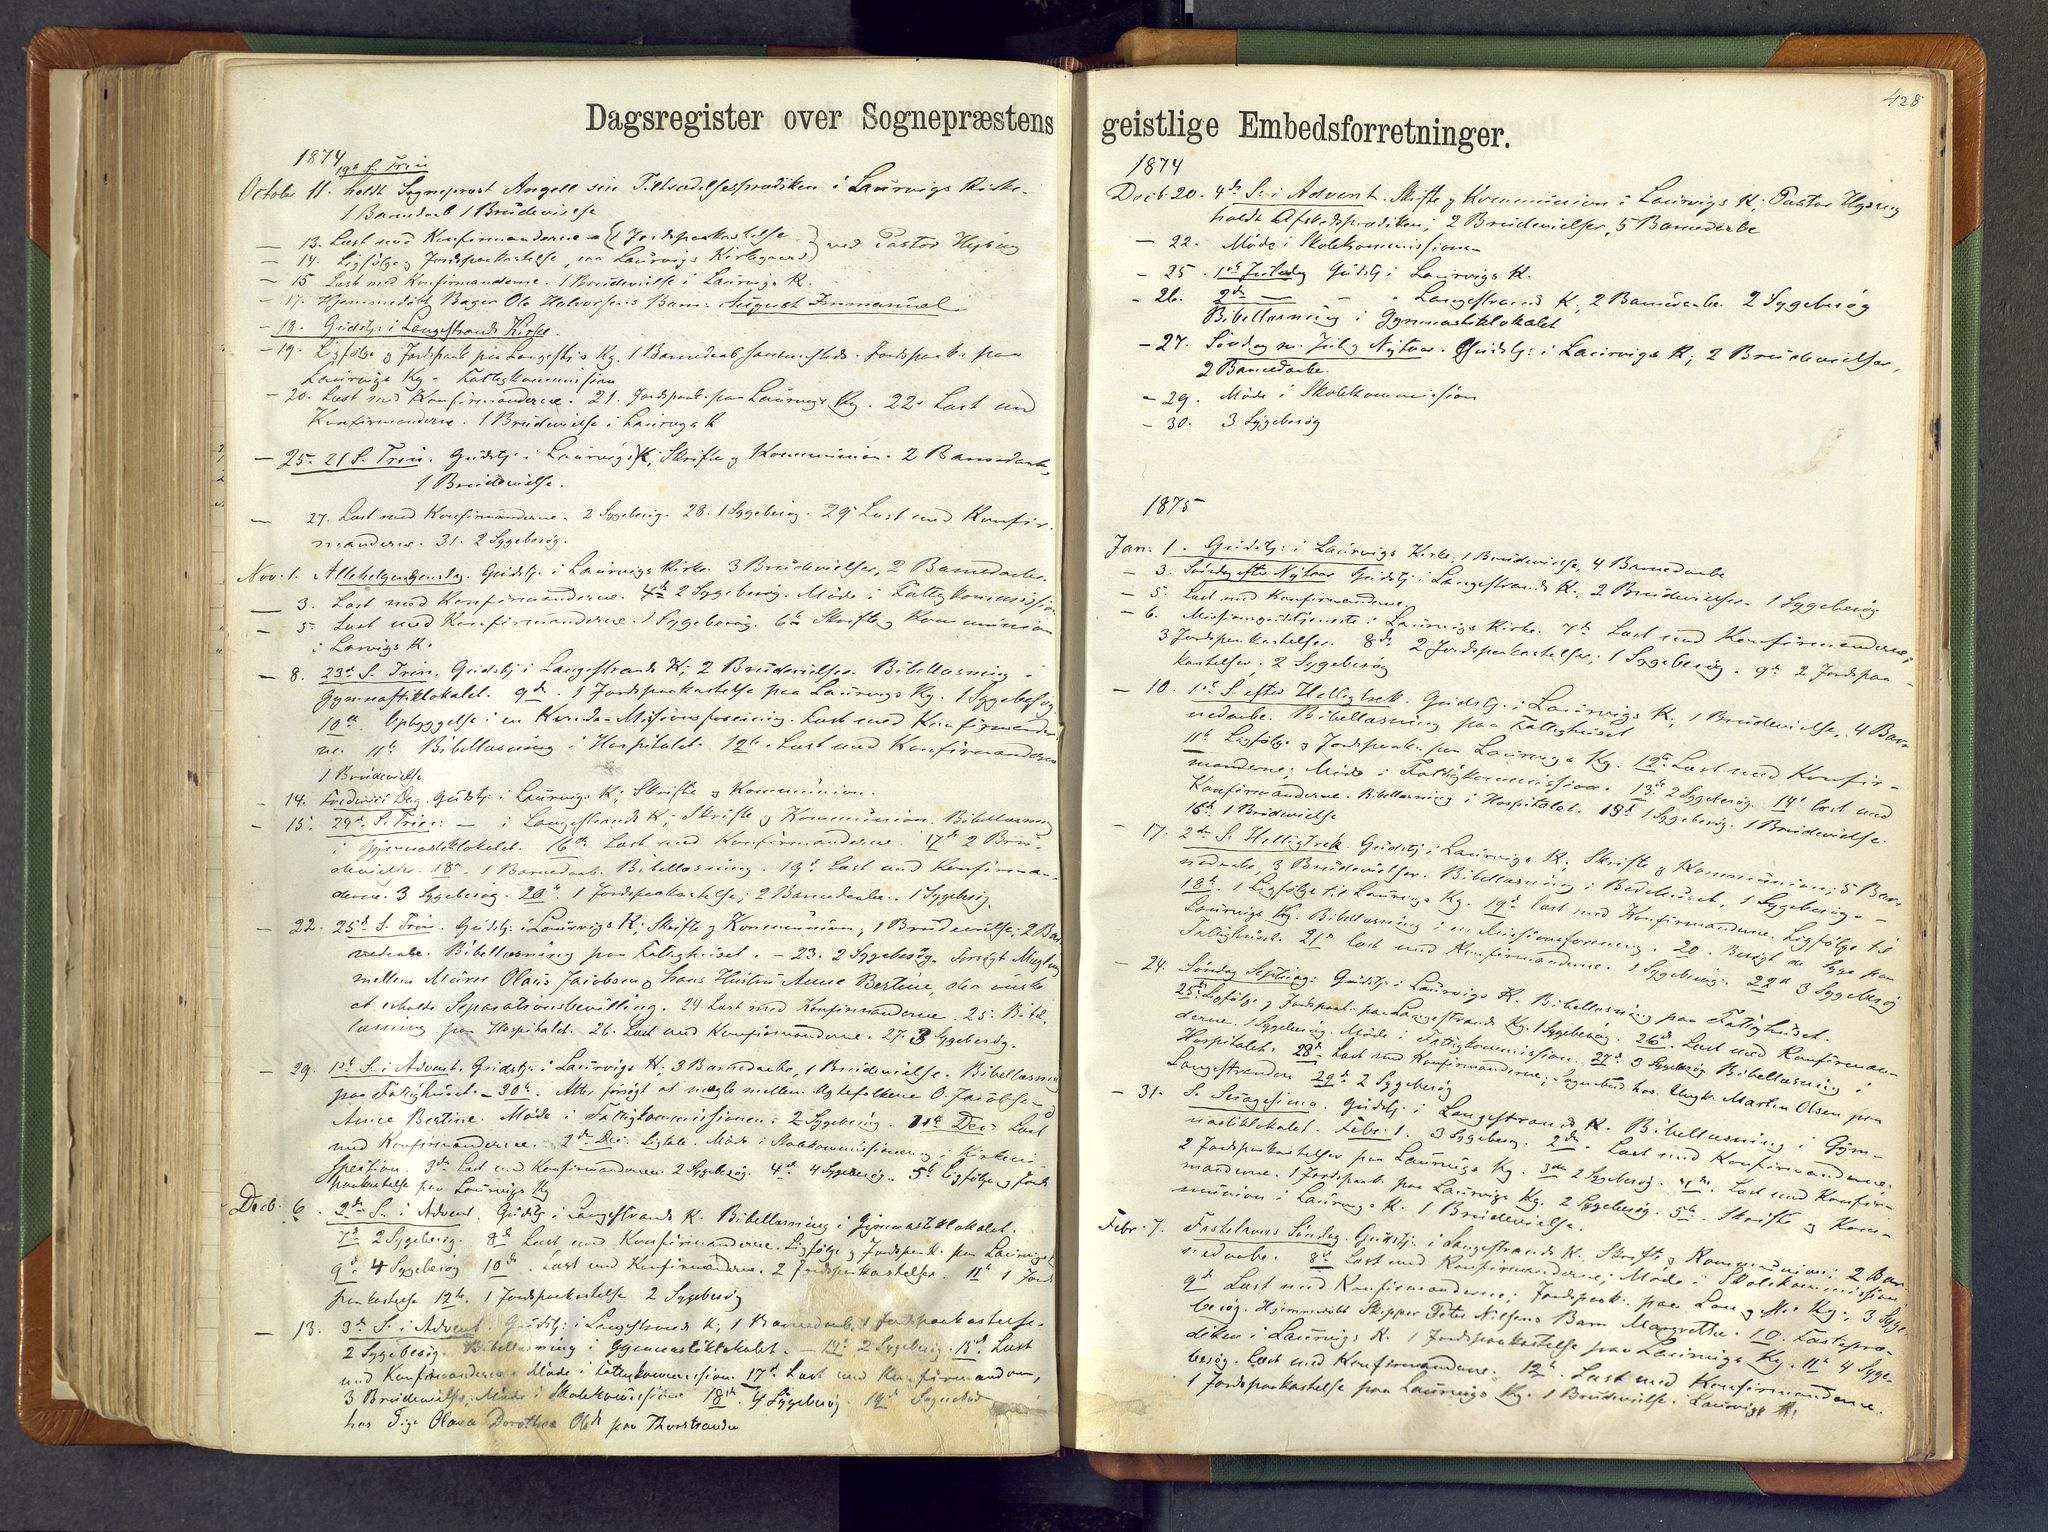 Dagsregister over Sognepræstens
1874
19de S. Trin
October 11. holdt Sogneprest Angell sin Tiltrædelsesprædiken i Laurvigs Kirke.
1 Barnedaab 1 Brudevielse
— 13. Læst med Konfirmanderne – 1 Jordpaakastelse ved Pastor
— 14. Ligfølge og Jordpaakastelse paa Laurvigs Kirkegaard
— 15 Læst med Konfirmanderne. 1 Brudevielse i Laurvigs K.
— 17. Hjemmedøbt Bager Ole Halvorsens Barn August Immanuel
— 18. Gudstj: i Langestrands Kirke.
— 19. Ligfølge og Jordspaak paa Langestr's Kg. 1 Barnedaab sammesteds. Jordspaak: paa
Laurvigs Kg – Fattigkommission
— 20. Læst med Konfirmanderne. 21. Jordspaak: paa Laurvigs Kg. 22de Læst med
Konfirmanderne. 1 Brudevielse i Laurvigs K
— 25. 21 S. Trin. Gudstj: i Laurvigs K; Skrifte og Kommunion. 2 Barnedaabe,
1 Brudevielse.
— 27. Læst med Konfirmanderne. 2 Sygebesøg. 28. 1 Sygebesøg. 29 Læst med Konfir-
manderne. 31. 2 Sygebesøg.
Nov. 1. Allehelgensdag. Gudstj: i Laurvigs Kirke. 3 Brudevielser, 2 Barnedaabe.
— 3. Læst med Konfirmanderne. 4de 2 Sygebesøg. Møde i Fattigkommission
— 5. Læst med Konfirmanderne. 1 Sygebesøg. 6te Skrifte og Kommunion
i Larvigs K.
— 8. 23de S. Trin. Gudstj i Langestrands K; 2 Brudevielser. Bibellæsning i
Gymnastiklokalet. 9de. 1 Jordspaakastelse paa Laurvigs Kg. 1 Sygebesøg.
10de. Opbyggelse i en Kvinde-Missionsforening. Læst med Konfirmander
ne. 11te Bibellæsning i Hospitalet. 12te. Læst med Konfirmanderne
1 Brudevielse
— 14. Gudstj: i Laurvigs K; Skrifte og Kommunion.
— 15. 24de S. Trin: — i Langestrands K; Skrifte og Kommunion. Bibellæsning
i Gymnastiklokalet. 16de Læst med Konfirmanderne. 17de 2 Bru-
devielser. 18de. 1 Barnedaab. Bibellæsning. 19de Læst med Konfirman-
derne. 3 Sygebesøg. 20de 1 Jordspaakastelse; 2 Barnedaabe. 1 Sygebesøg.
— 22. 25de S. Trin. Gudstj: i Laurvigs K; Skrifte og Kommunion; 1 Brudevielse; 2 Bar
nedaabe. Bibellæsning paa Fattighuset. – 23. 2 Sygebesøg. Forsøgt Mægling
mellem Murer Olaus Jacobsen og hans Hustru Anne Bertine, der ønske
at erholde Separationsbevilling. 24. Læst med Konfirmanderne. 25. Bibel-
læsning paa Hospitalet. 26. Læst med Konfirmanderne. 27. 3 Sygebesøg.
— 29. 1ste S. i Advent. Gudstj: i Laurvigs K; 3 Barnedaabe, 1 Brudevielse. Bibellæsning
paa Fattighuset. – 30te. Atter forsøgt at mægle mellem Ægtefolkene O. Jacobsen og
Anne Bertine. Møde i Fattigkommissionen. 2 Sygebesøg. 1ste Dec. Læst
med Konfirmanderne. 2de Dec. Ligtale. Møde i Skolekommissionen og i Kirkein-
spektion. 3de Læst med Konfirmanderne 2 Sygebesøg. 4de 4 Sygebesøg. 5te Ligfølge og Jords
paakastelse paa Laurvigs Kg
Decb. 6. 2den S. i Advent. Gudstj i Langestrands K. Bibellæsning i Gymnastiklokalet.
7de 2 Sygebesøg. 8de Læst med Konfirmanderne. Ligfølge og Jordspaak. paa Laurvigs K
9de. 4 Sygebesøg 10de. Læst med Konfirmanderne. 2 Jordspaakastelser. 11te 1 Jord
paakastelse 12te. 1 Jordspaakastelse 2 Sygebesøg
— 13. 3de S. i Advent. Gudstj: i Langestrands K; 1 Barnedaab. 1 Jordspaakastelse.
2 Sygebesøg. Bibellæsning i Gymnastiklokalet. – 14de 2 Sygebesøg. 15de. Læst
med Konfirmanderne. Møde i Fattigkommission 17de Læst med Konfirmanderne,
3 Brudevielser, Møde i Skolekommission 18de 4 Sygebesøg. 19de Sognebud
hos Pige Olava Dorothea Olsd paa Thorstranden
geistlige Embedsforretninger.
428
1874
Decb. 20. 4de S. i Advent. Skrifte og Kommunion i Laurvigs K; Pastor
holdt Afskedsprædiken; 2 Brudevielser, 5 Barnedaabe
— 22. Møde i Skolekommissionen
— 25. 1ste Juledag Gudstj i Laurvigs K.
— 26. 2den — – " Langestrands K; 2 Barnedaabe. 2 Sygebesøg
Bibellæsning i Gymnastiklokalet
— 27. Søndag m. Jul og Nytaar. Gudstj: i Laurvigs K; 2 Brudevielser,
2 Barnedaabe.
— 29. Møde i Skolekommission
— 30. 3 Sygebesøg
1875
Jan: 1. Gudstj: i Laurvigs Kirke; 1 Brudevielse, 4 Barnedaabe
— 3. Søndag efter Nytaar Gudstj i Langestrands K. 2 Brudevielser 1 Sygebesøg
— 5. Læst med Konfirmanderne
— 6. Missionsgudstjeneste i Laurvigs Kirke. 7de Læst med Konfirmanderne;
3 Jordspaakastelser. 8de 2 Jordspaakastelser; 1 Sygebesøg. 9de 2 Jordspaa-
kastelser. 2 Sygebesøg
— 10. 1ste S. efter Helligtrek. Gudstj: i Laurvigs K; 1 Brudevielse, 4 Bar-
nedaabe. Bibellæsning paa Fattighuset
11te Ligfølge og Jordspaak: paa Laurvigs Kg. 12te Læst med Konfir-
manderne; Møde i Fattigkommission. 13de 2 Sygebesøg. 14de læst med
Konfirmanderne. Bibellæsning i Hospitalet. 15de 1 Sygebesøg. 1 Brudevielse.
16de 1 Brudevielse
— 17. 2den S. Helligtrek. Gudstj i Laurvigs K; Skrifte og Kommunion; 5 Bar-
nedaabe, 3 Brudevielser. Bibellæsning i Bedehuset, 1 Sygebesøg –
18de. 1 Ligfølge til Laurvigs Kg. 19de læst med Konfirmanderne. Ligfølge til
Laurvigs Kg. Bibellæsning i en Missionsforening. 20 Besøgt de Syge paa
Fattighuset. 21de læst med Konfirmanderne. 1 Sygebesøg. 22de 3 Sygebesøg
— 24. Søndag Septuag: Gudstj: i Laurvigs K. Bibellæsning paa Fattighuset.
25de Ligfølge og Jordspaak: paa Langestrands Kg. 1 Sygebesøg. 26de. Læst med Konfirman-
derne. 1 Sygebesøg. Møde i Fattigkommission. 27de 3 Sygebesøg Bibellæsning i
Hospitalet. 28de Læst med Konfirmanderne; Sognebud hos Ungk. Martin Olsen paa
Langestranden 29de 2 Sygebesøg
— 31. S. Sexagesima. Gudstj: i Langestrands K. Bibellæsning i Gym-
nastiklokalet. Febr 1. 3 Sygebesøg. 2den Læst med Konfirmanderne.
2 Jordspaakastelser paa Laurvigs Kg. 3de 2 Sygebesøg. 4de. Læst med Konfir-
manderne. 1 Jordspaak: paa Laurvigs Kg. 2 Sygebesøg. 5te. Skrifte og Kom-
munion i Laurvigs K. 1 Brudevielse.
Febr. 7. Fastelavns Søndag. Gudstj: i Langestrands K. Skrifte og Kommunion; 2 Bar-
nedaabe. 8de Læst med Konfirmanderne; Møde i Skolekommission;
9de Læst med Konfirmanderne; Jordspaak: paa Langestr Kg; 3 Syge-
besøg. Hjemmedøbt Skipper Peter Nilsens Barn Margrethe. 10. Fastepræ-
diken i Laurvigs K. 1 Jordspaakastelse paa Laurvigs Kg. 11te 4 Syge-
besøg. læst med Konfirmanderne. 12te. Læst med Konfirmanderne.
1 Jordspaakastelse paa Laurvigs Kg. 1 Brudevielse i Laurvigs K.